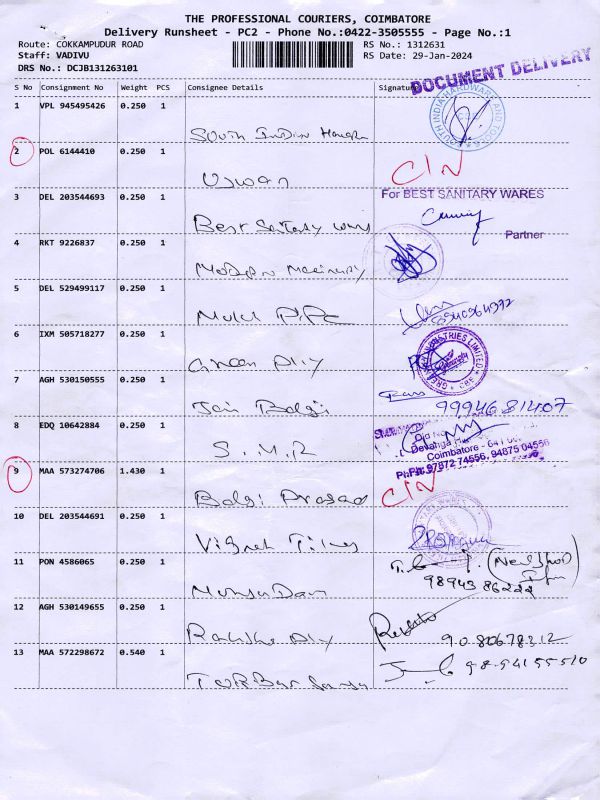 THE PROFESSIONAL COURIERS, COIMBATORE
Delivery Runsheet - PC2 - Phone No.:0422-3505555 - Page No.:1
Route: COKKAMPUDUR ROAD RS No.: 1312631
Staff: VADIVU RS Date: 29-Jan-2024
DRS No.: DCJB131263101
DOCUMENT DELIVERY
S No Consignment No Weight PCS Consignee Details Signature
1 VPL 945495426 0.250 1
South Indian
2 POL 6144410 0.250 1
C/N
3 DEL 203544693 0.250 1
For BEST SANITARY WARES
Best
Partner
4 RKT 9226837 0.250 1
Modern
5 DEL 529499117 0.250 1
6 IXM 505718277 0.250 1
Green Ply
7 AGH 530150555 0.250 1
Jai Balaji
9994681407
8 EDQ 10642884 0.250 1
S.M.R
Coimbatore - 641
Ph: 97872 74556, 94875 04556
9 MAA 573274706 1.430 1
C/N
Balaji Prasad
10 DEL 203544691 0.250 1
Vignesh Tiles
11 PON 4586065 0.250 1
98943 86222
12 AGH 530149655 0.250 1
Ply
9080678312
13 MAA 572298672 0.540 1
9894155510